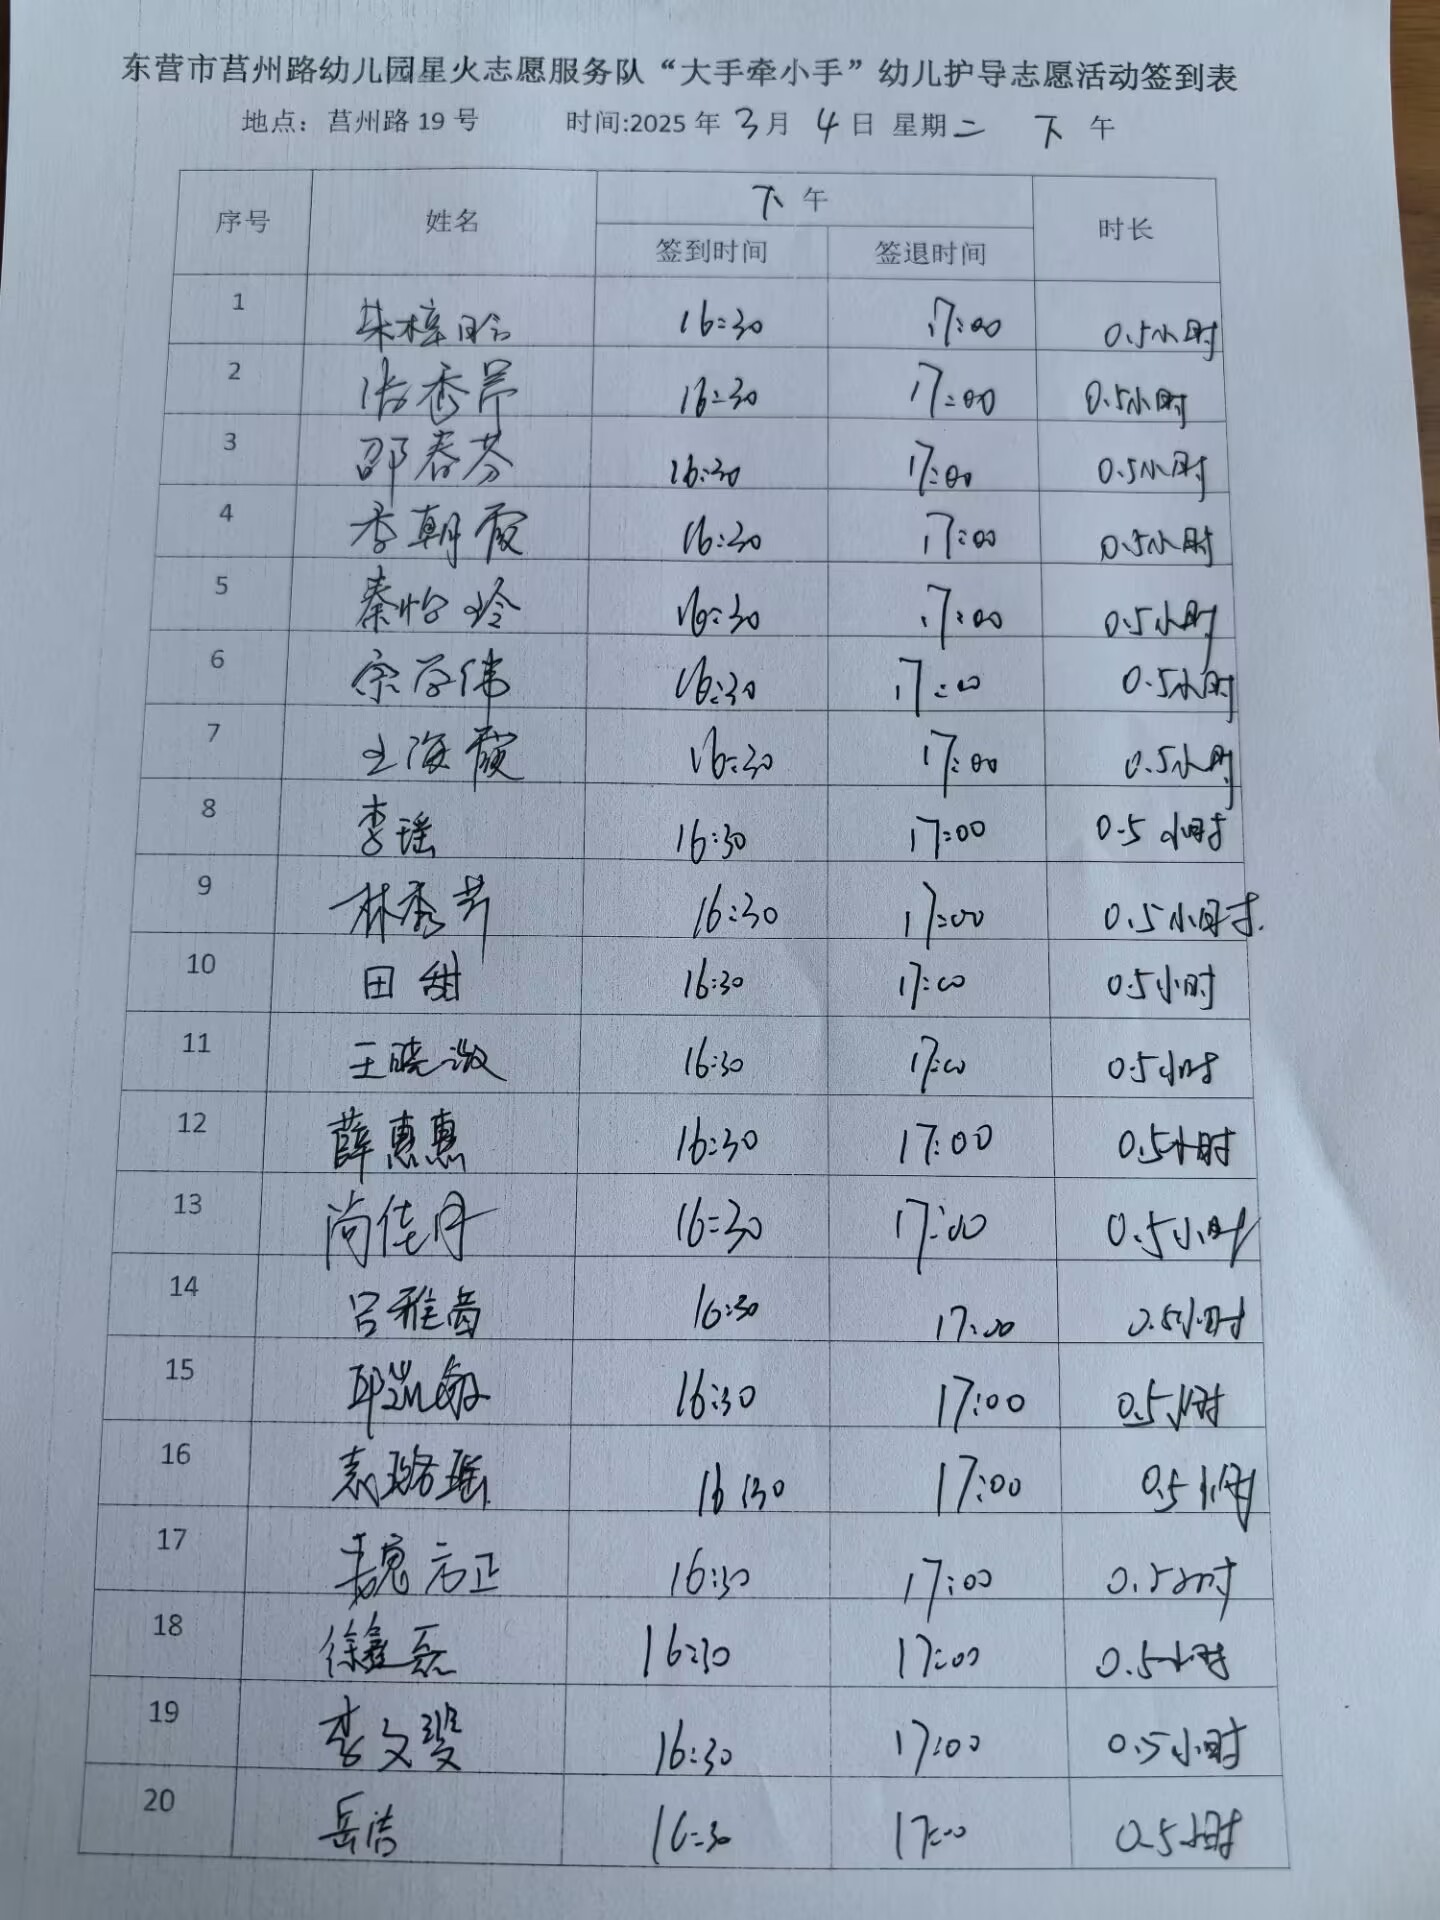 东营市莒州路幼儿园星火志愿服务队“大手牵小手”幼儿护导志愿活动签到表
地点：莒州路19号 时间:2025年3月4日 星期二 下午
序号 姓名 下午 时长
签到时间 签退时间
1 朱梓晗 16:30 17:00 0.5小时
2 张香芹 16:30 17:00 0.5小时
3 邵春芬 16:30 17:00 0.5小时
4 李朝霞 16:30 17:00 0.5小时
5 秦怡玲 16:30 17:00 0.5小时
6 宗厚伟 16:30 17:00 0.5小时
7 王海霞 16:30 17:00 0.5小时
8 李瑶 16:30 17:00 0.5小时
9 林秀芳 16:30 17:00 0.5小时.
10 田甜 16:30 17:00 0.5小时
11 王晓 16:30 17:00 0.5小时
12 薛惠惠 16:30 17:00 0.5小时
13 尚佳丹 16:30 17:00 0.5小时
14 吕雅茜 16:30 17:00 0.5小时
15 邱凯敏 16:30 17:00 0.5小时
16 袁璐瑶 16:30 17:00 0.5小时
17 魏方正 16:30 17:00 0.5小时
18 徐鑫磊 16:30 17:00 0.5小时
19 李文斐 16:30 17:00 0.5小时
20 岳洁 16:30 17:00 0.5小时